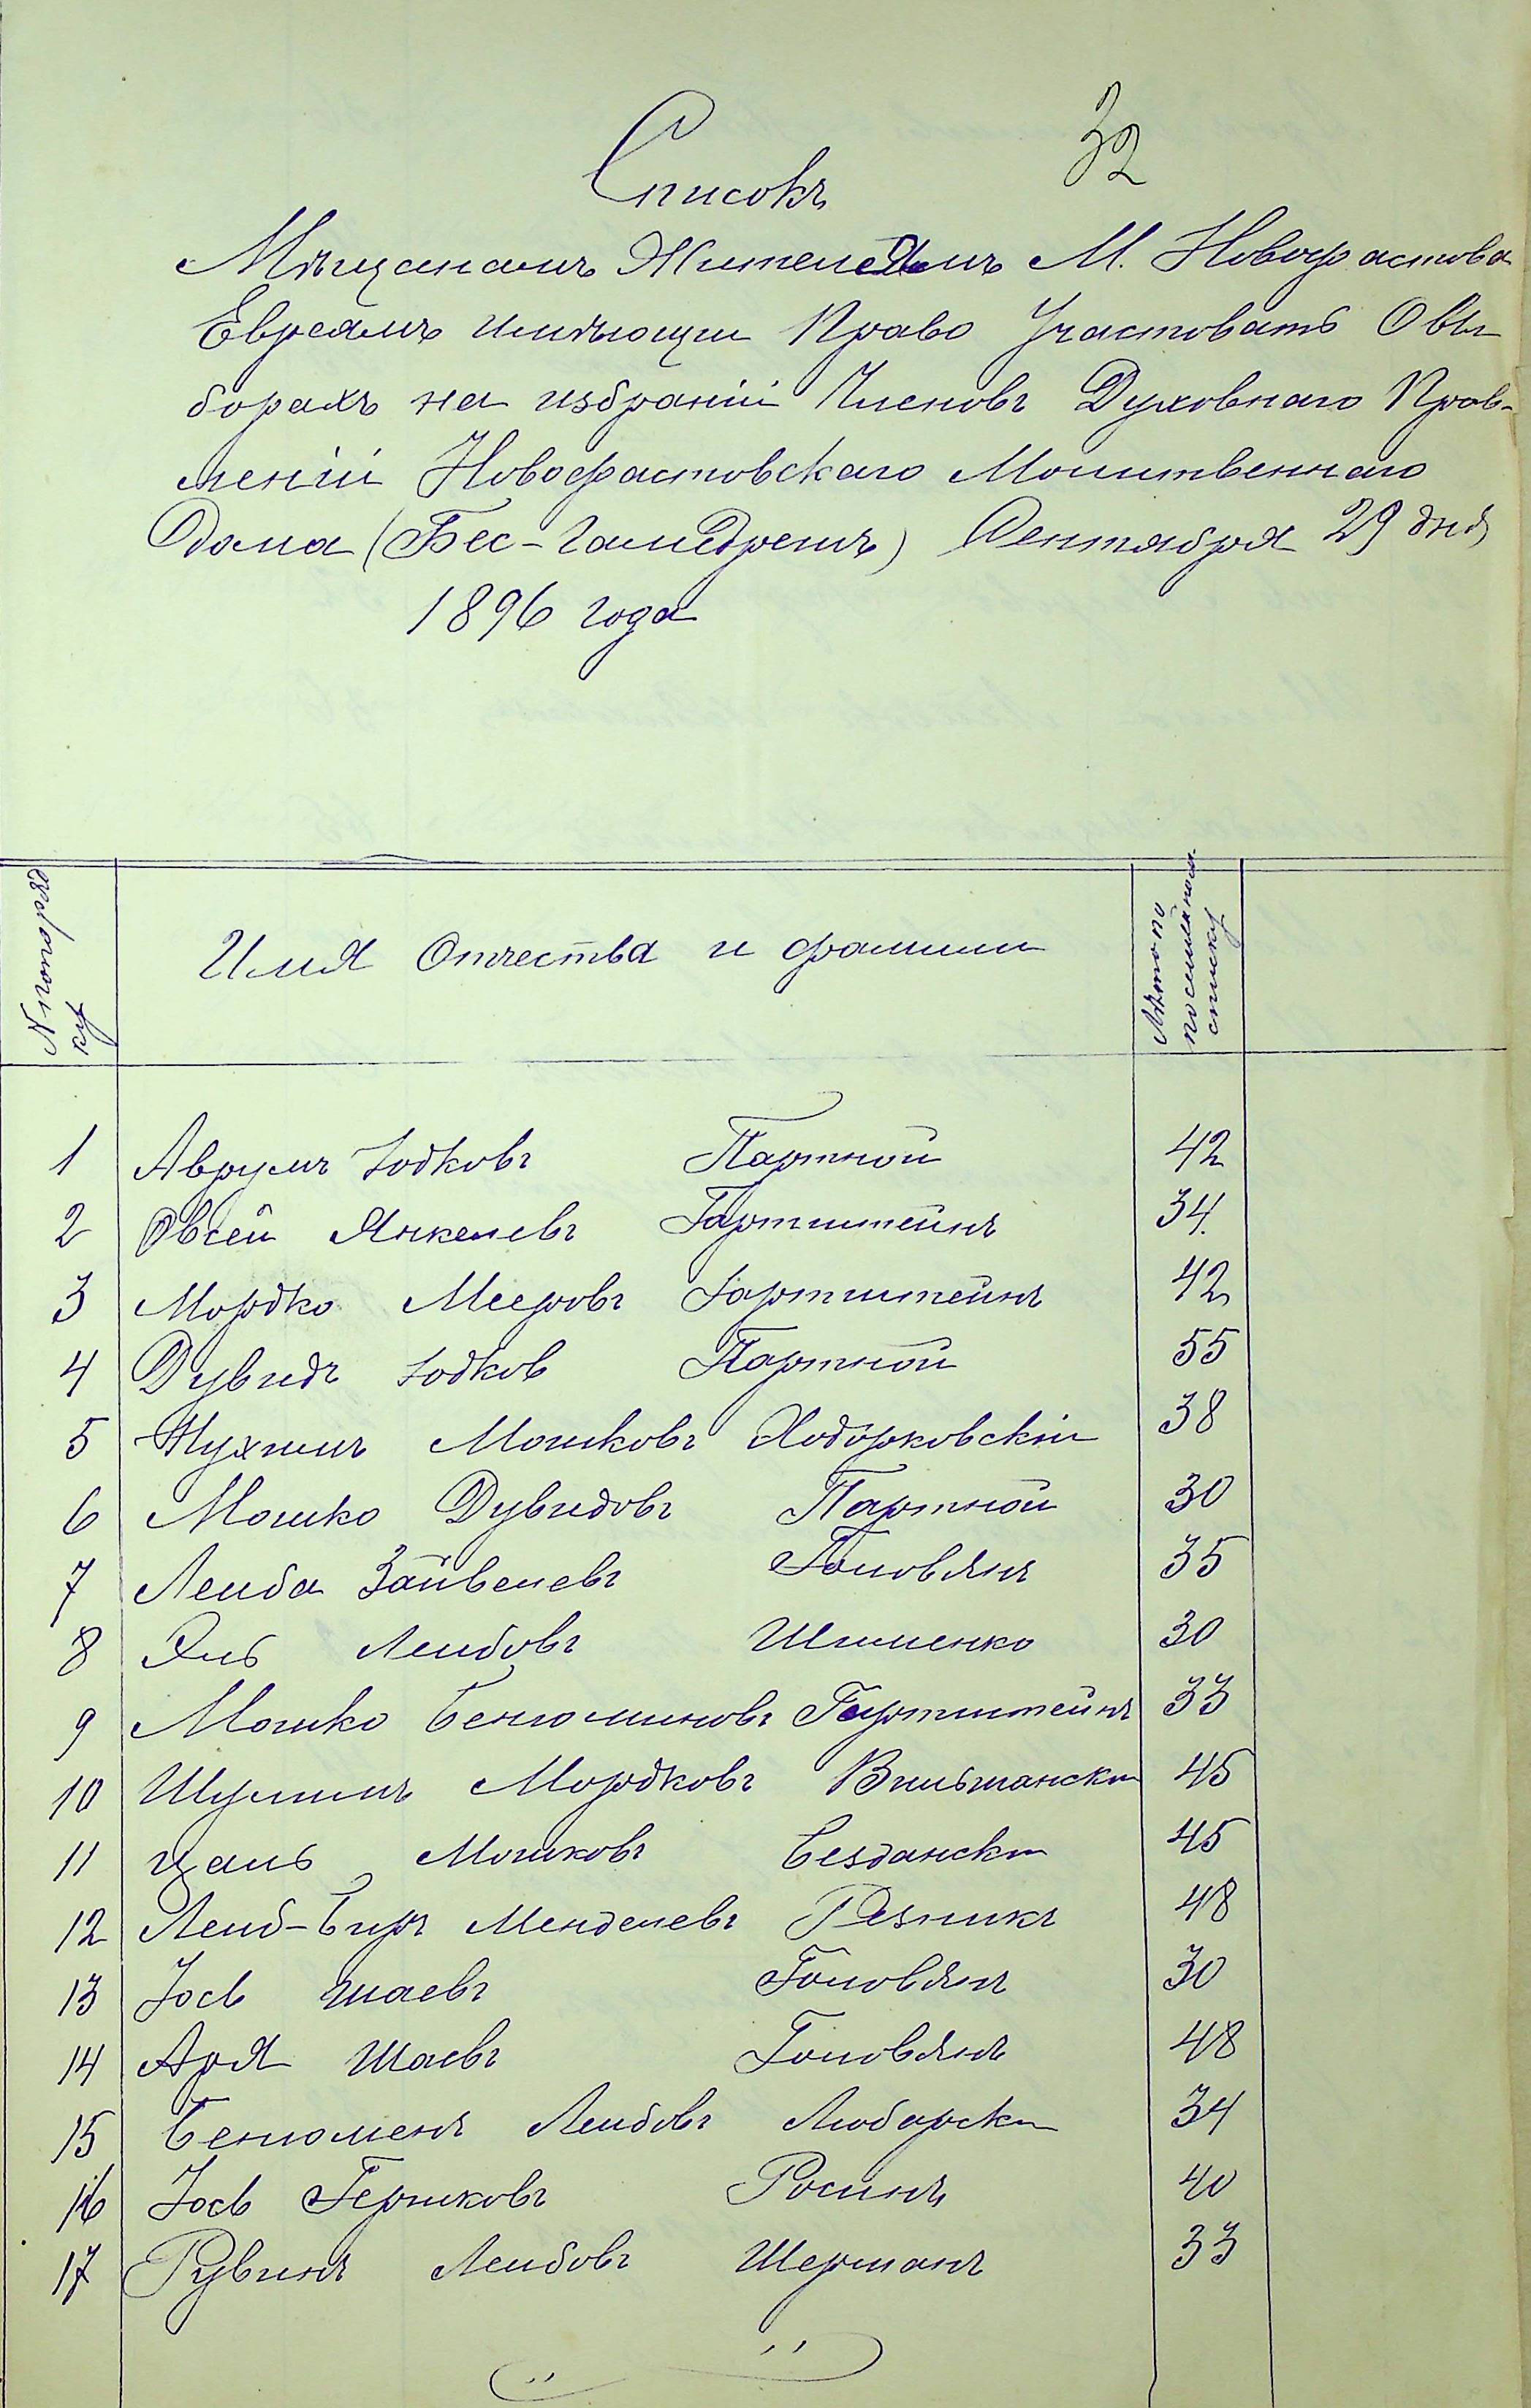 32
Списокъ
Мѣщанамъ Жителямъ М. Новофастова
Евреямъ имѣющи Право Участовать Овы
борахъ на избраніи Членовъ Духовнаго Прав-
леніи Новофастовскаго Молитвеннаго
Дома (Бес-Гамедрешъ) Сентября 29 дня
1896 года
N попоряд
ку
Имя Отчества и фамили
Лѣто по
посемейном.
списку
1 Аврумъ Іодковъ Партной 42
2 Овсей Янкелевъ Гартштейнъ 34.
3 Мордко Мееровъ Гартштейнъ 42
4 Дувидъ Іодков Партной 55
5 Нухимъ Мошковъ Ходорковскій 38
6 Мошко Дувидовъ Партной 30
7 Лейба Зайвелевъ Головянъ 35
8 Эль Лейбовъ Шименко 30
9 Мошко Бенюминовъ Гартштейнъ 33
10 Шулимъ Мордковъ Вильшански 45
11 Цаль Мошковъ Бездански 45
12 Лейб-Биръ Менделевъ Резникъ 48
13 Іось Шаевъ Головянъ 30
14 Аря Шаевъ Головянъ 48
15 Бенюменъ Лейбовъ Любарски 34
16 Іось Гершковъ Росинъ 40
17 Рувинъ Лейбовъ Шерманъ 33